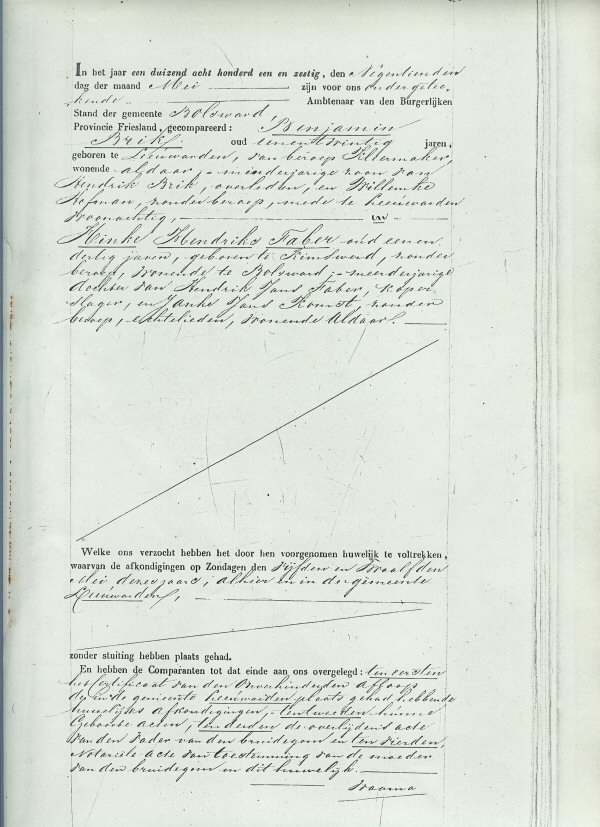 In het jaar een duizend acht honderd een en zestig, den Negentienden
dag der maand Mei zijn voor ons ondergetee-
kende Ambtenaar van den Burgerlijken
Stand der gemeente Bolsward,
Provincie Friesland, gecompareerd: Benjamin
Brik, oud eenentwintig jaren,
geboren te Leeuwarden, van beroep
wonende aldaar, minderjarige zoon van
Hendrik Brik, overleden, en Willemke
Hofman, zonder beroep, mede te Leeuwarden
woonachtig, en
Hinke Hendriks Faber oud een en
dertig jaren, geboren te Kimswerd, zonder
beroep, wonende te Bolsward, meerderjarige
dochter van Hendrik Jans Faber, koper-
slager, en Janke Jans Romst, zonder
beroep, echtelieden, wonende Aldaar.
Welke ons verzocht hebben het door hen voorgenomen huwelijk te voltrekken,
waarvan de afkondigingen op Zondagen den vijfden en twaalfden
Mei dezes jaars, alhier en in der gemeente
Leeuwarden,
zonder stuiting hebben plaats gehad.
En hebben de Comparanten tot dat einde aan ons overgelegd: ten eersten
het certificaat van den Onverhinderden afloop
der in de gemeente Leeuwarden plaats gehad hebbende
huwelijks afkondigingen, ten tweeden hunne
Geboorte acten, ten derden de overlijdens acte
van den vader van den bruidegom en ten vierden,
Notariële acte van toestemming van de moeder
van den bruidegom in dit huwelijk.
waarna